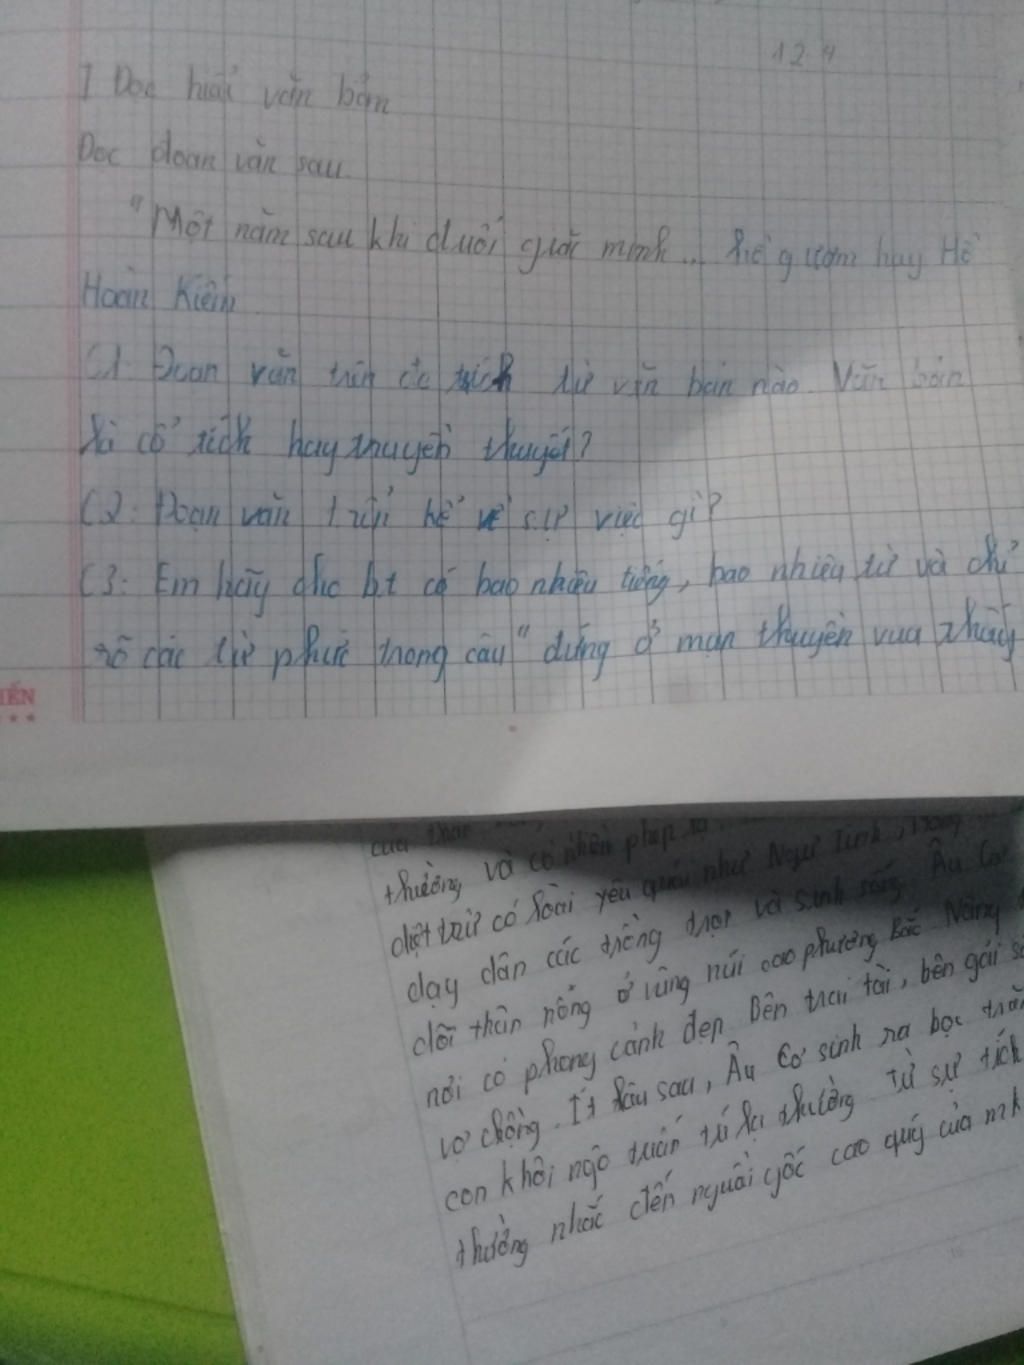 12.4
I Đọc hiểu văn bản
Đọc đoạn văn sau.
"Một năm sau khi đuổi giặc minh... hồ gươm hay Hồ
Hoàn Kiếm
C1: Đoạn văn trên đc trích từ văn bản nào. Văn bản
là cổ tích hay truyền thuyết?
C2: Đoạn văn trên kể về sự việc gì?
C3: Em hãy cho bt có bao nhiêu tiếng, bao nhiêu từ và chỉ
rõ các từ phức trong câu "đứng ở mạn thuyền vua thấy
IẾN
của
thường và có nhiều phép lạ
diệt trừ có loài yêu quái như Ngư Tinh,
dạy dân các trồng trọt và sinh sống. Âu Cơ
dõi thần nông ở vùng núi cao phương Bắc. Nàng
nơi có phong cảnh đẹp. Bên trai tài, bên gái
vợ chồng. Ít lâu sau, Âu Cơ sinh ra bọc
con khôi ngô tuấn tú lạ thường. Từ sự tích
thường nhắc đến nguời gốc cao quý của mk